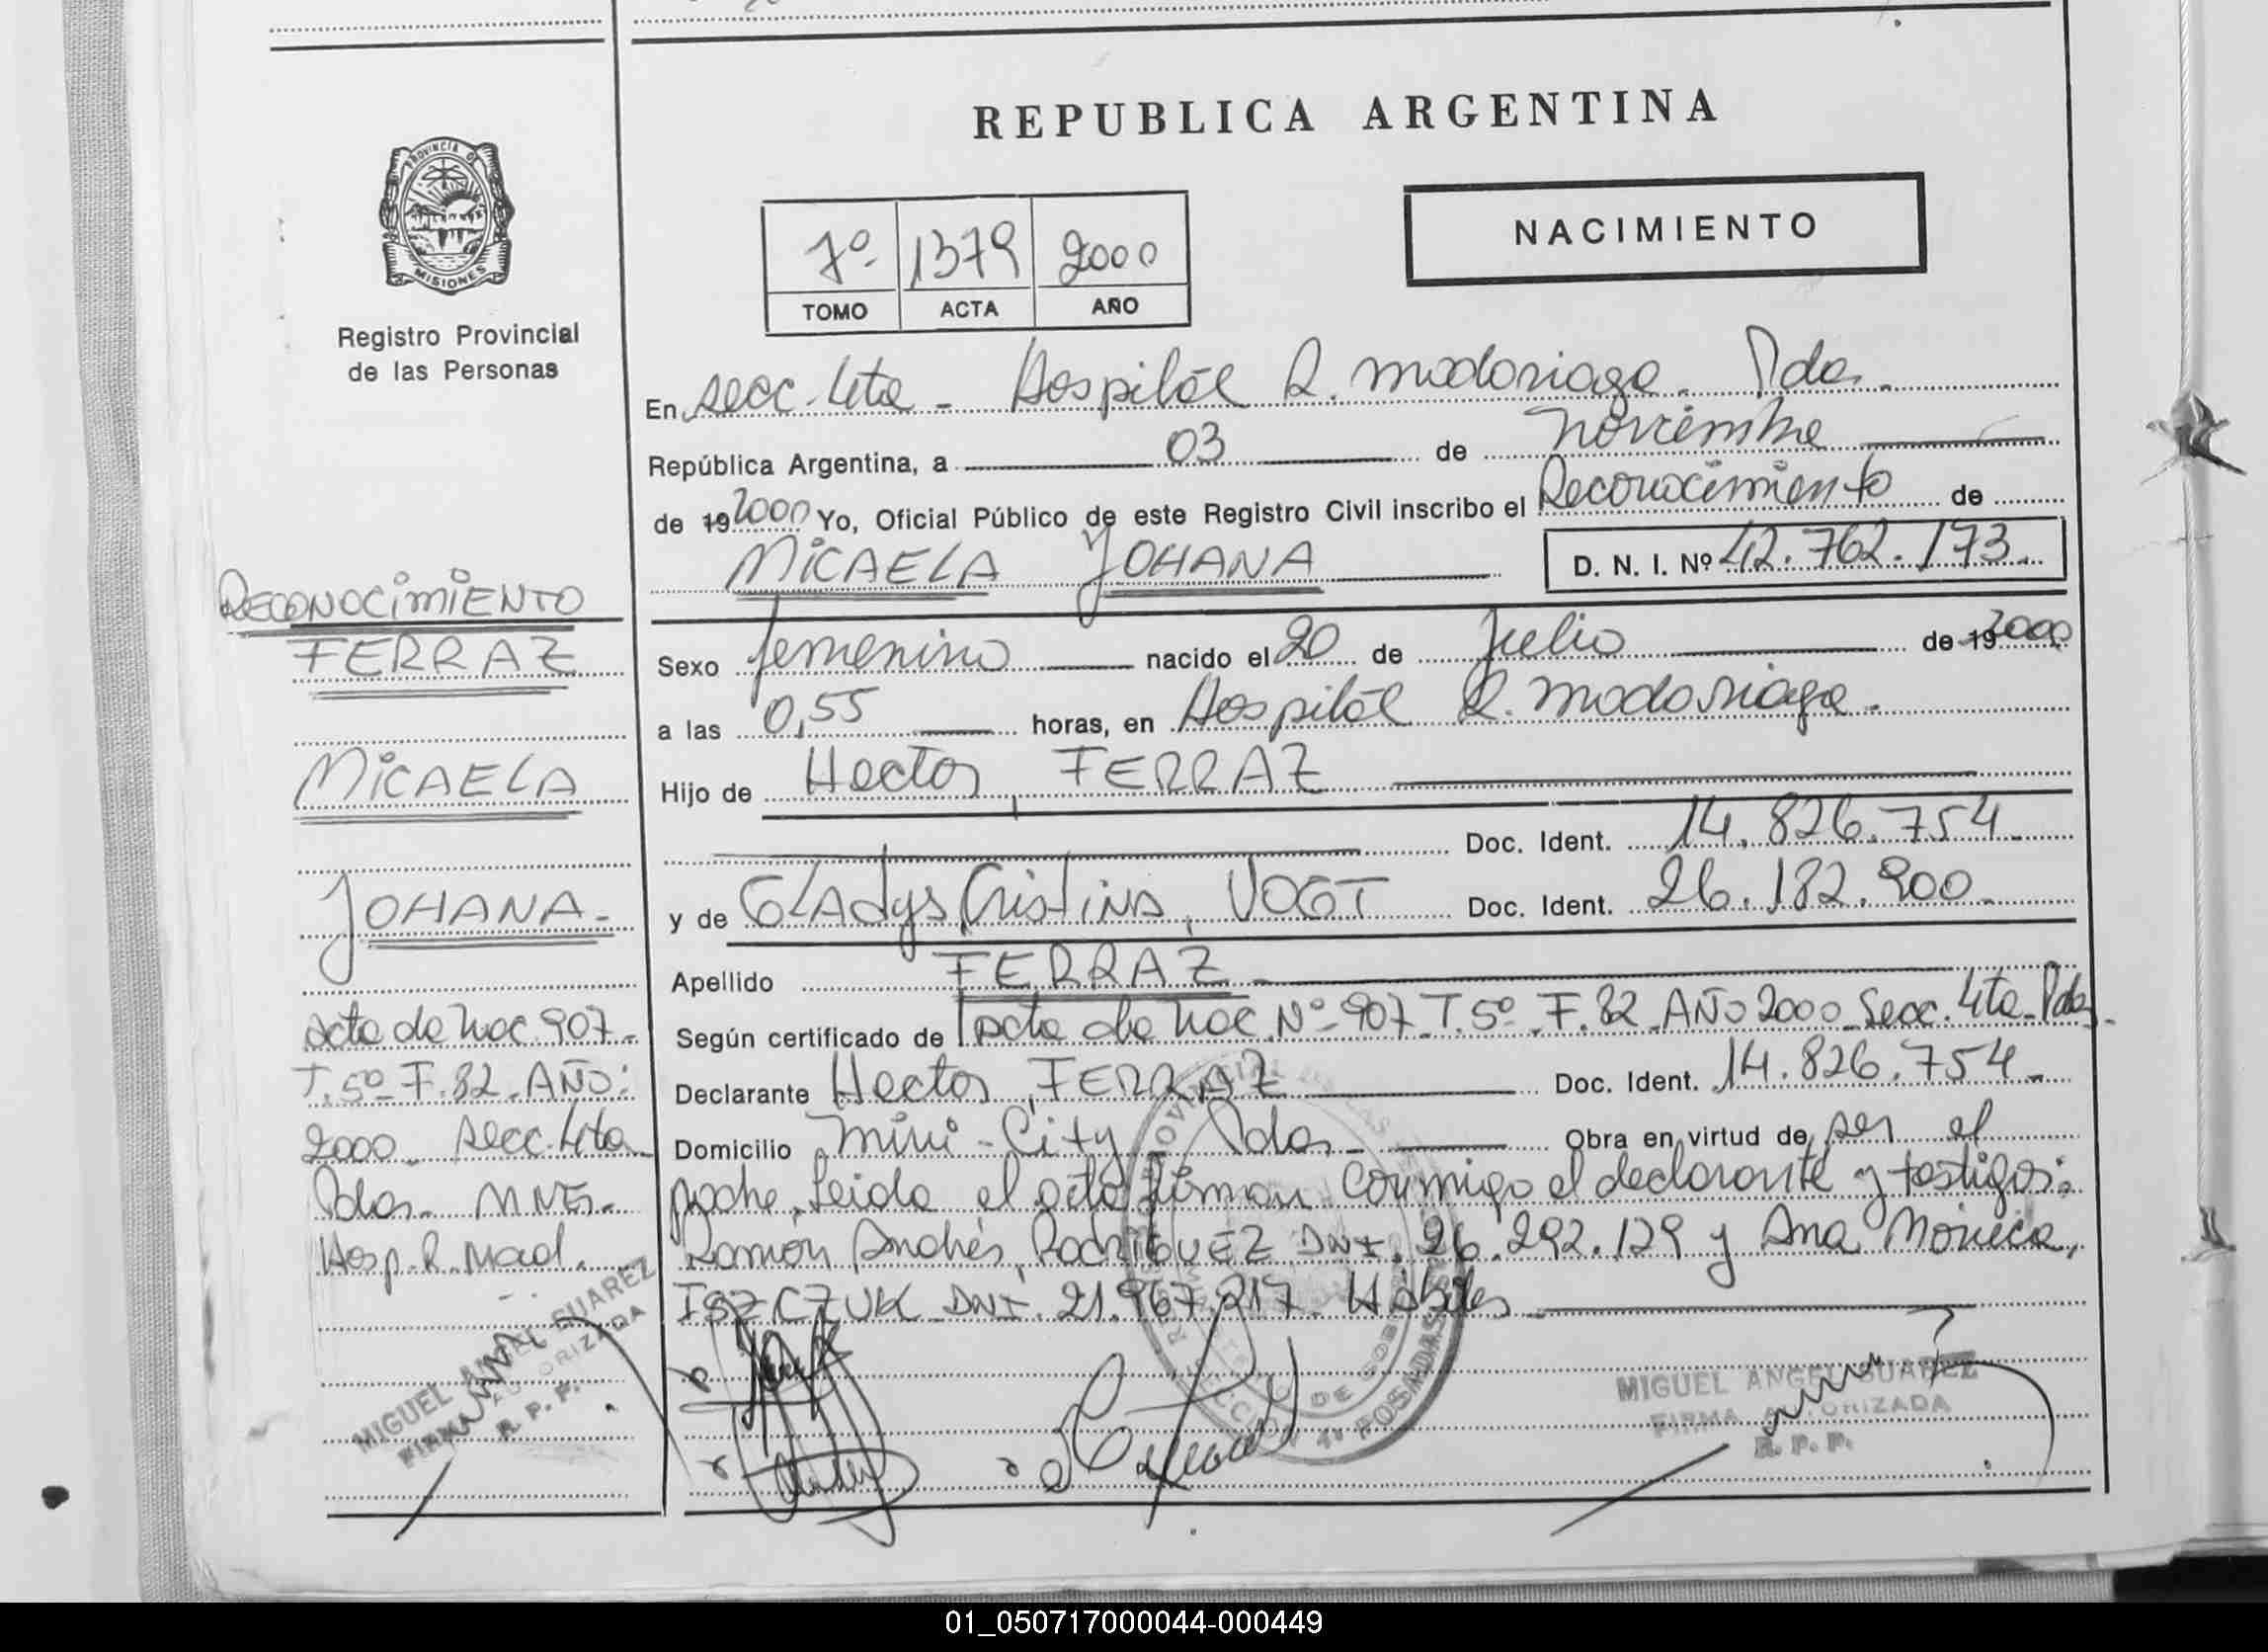 REPUBLICA ARGENTINA
PROVINCIA DE
MISIONES
Registro Provincial
de las Personas
7º 1379 2000
TOMO ACTA AÑO
NACIMIENTO
En secc. 4ta - Hospital R. Madariaga. Pdas.
República Argentina, a 03 de noviembre
de 19 2000 Yo, Oficial Público de este Registro Civil inscribo el Reconocimiento de
MICAELA JOHANA
D. N. I. Nº 42.762.173.
Sexo femenino nacido el 20 de Julio de 19 2000
a las 0,55 horas, en Hospital R. Madariaga.
Hijo de Hector, FERRAZ
Doc. Ident. 14.826.754
y de GLAdys Cristina, VOGT Doc. Ident. 26.182.900
Apellido FERRAZ
Según certificado de acta de nac. Nº 907 T. 5º F. 82 AÑO 2000 Secc. 4ta. Pdas.
Declarante Hector, FERRAZ Doc. Ident. 14.826.754
Domicilio Mini-City Pdas. Obra en virtud de ser el
padre. Leida el acta firman conmigo el declarante y testigos:
Ramon Andrés, RODRIGUEZ DNI. 26.292.129 y Ana Mónica,
ISZCZUK DNI. 21.967.217. Hábiles
RECONOCIMIENTO
FERRAZ
MICAELA
JOHANA.
acta de nac. 907.
T. 5º F. 82. AÑO:
2000. secc. 4ta
Pdas. MNES.
Hosp. R. Mad.
MIGUEL ANGEL SUAREZ
FIRMA AUTORIZADA
R. P. P.
MIGUEL ANGEL SUAREZ
FIRMA AUTORIZADA
R. P. P.
POSADAS
01_050717000044-000449